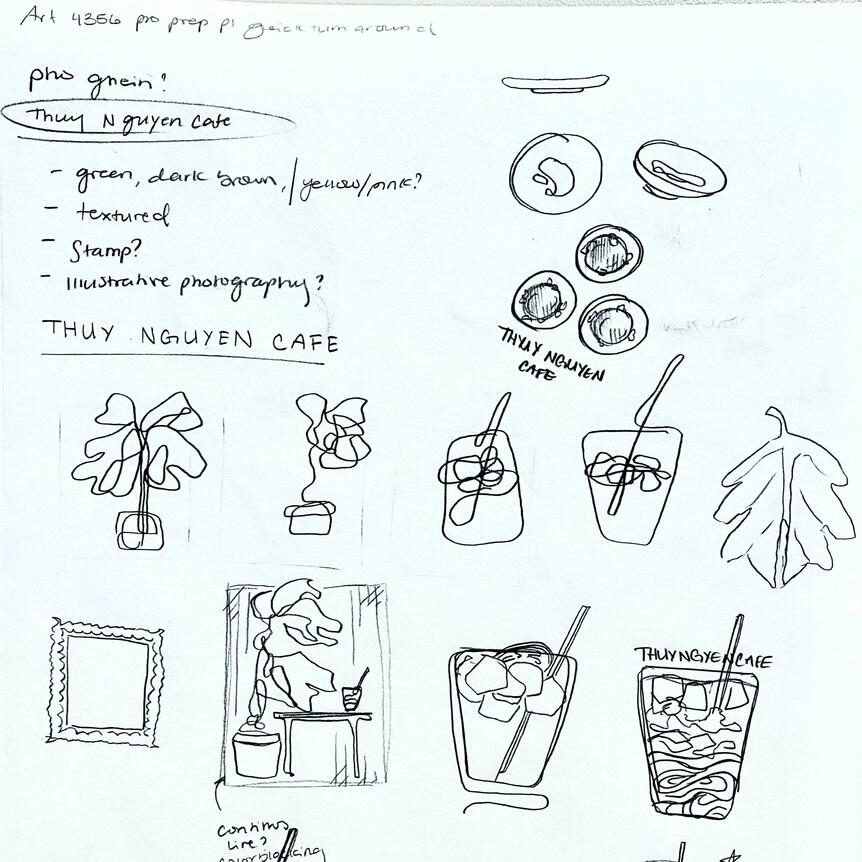 Art 4356 pro prep p1 quick turn around
pho ghein?
Thuy Nguyen Cafe
- green, dark brown, / yellow/pink?
- textured
- Stamp?
- Illustrative photography?
THUY NGUYEN CAFE
THYUY NGUYEN
CAFE
THUYNGYENCAFE
continus
line?
colorblocking